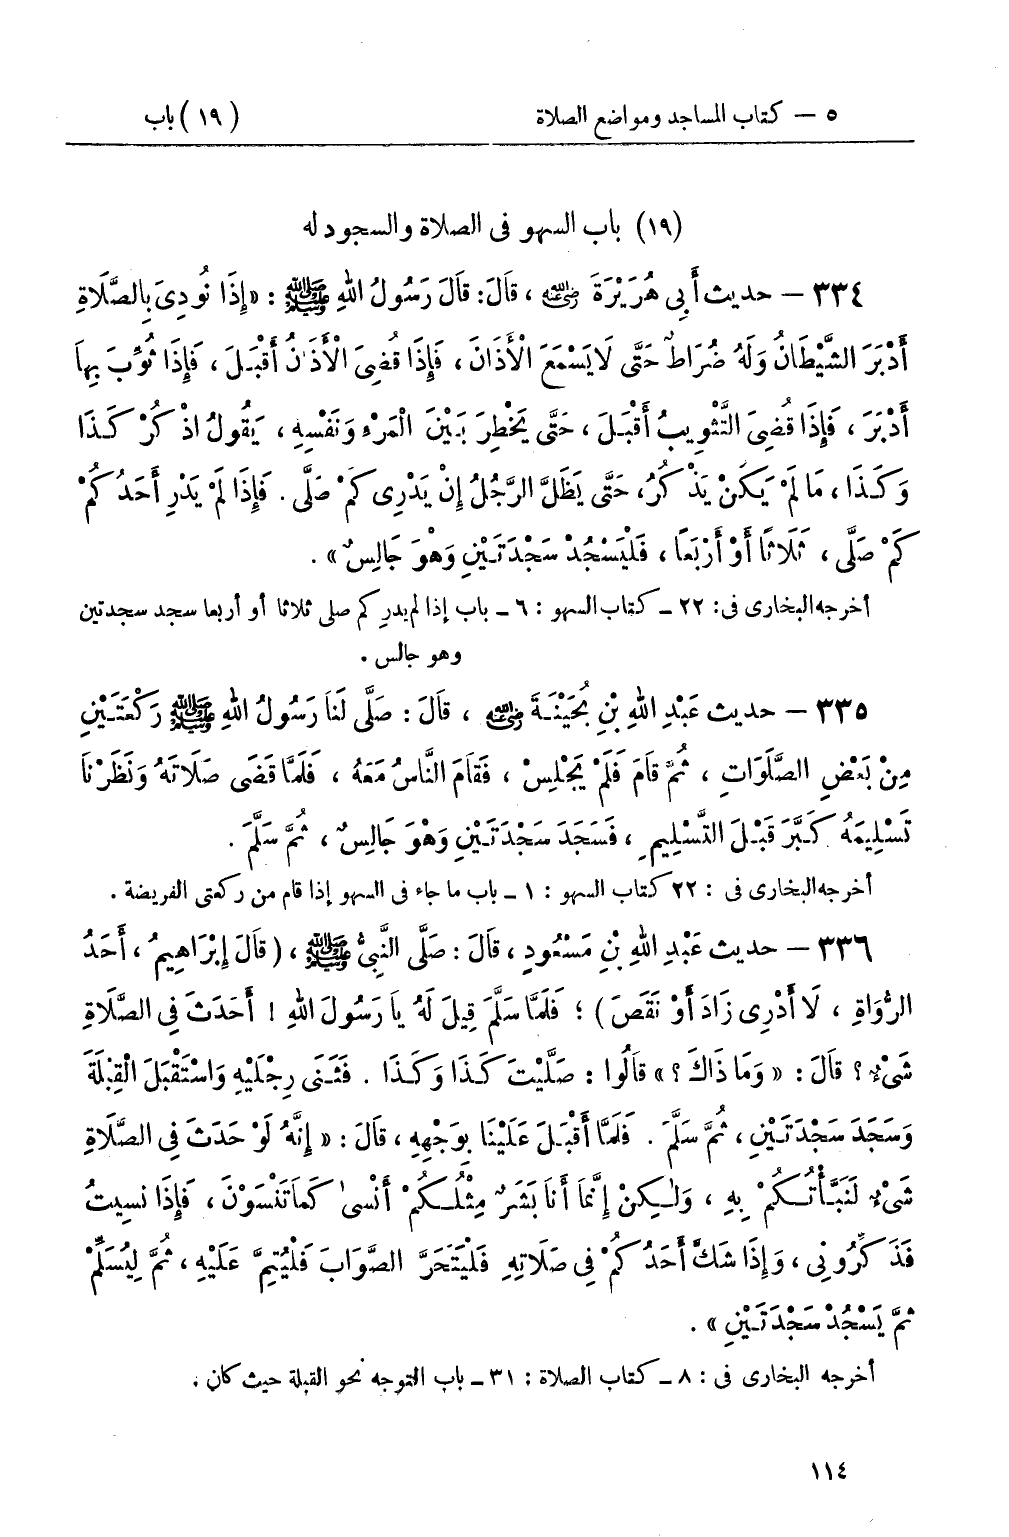 ٥ – كتاب المساجد ومواضع الصلاة (١٩) باب
(١٩) باب السهو فى الصلاة والسجود له
٣٣٤ – حديث أَبِي هُرَيْرَةَ رضي الله عنه ، قَالَ: قَالَ رَسُولُ اللهِ ﷺ : «إِذَا نُودِىَ بِالصَّلَاةِ
أَدْبَرَ الشَّيْطَانُ وَلَهُ ضُرَاطٌ حَتَّى لَا يَسْمَعَ الْأَذَانَ ، فَإِذَا قُضِىَ الْأَذَانُ أَقْبَلَ ، فَإِذَا ثُوِّبَ بِهَا
أَدْبَرَ ، فَإِذَا قُضِىَ التَّثْوِيبُ أَقْبَلَ ، حَتَّى يَخْطِرَ بَيْنَ الْمَرْءِ وَنَفْسِهِ ، يَقُولُ اذْكُرْ كَذَا
وَكَذَا ، مَا لَمْ يَكُنْ يَذْكُرُ، حَتَّى يَظَلَّ الرَّجُلُ إِنْ يَدْرِى كَمْ صَلَّى . فَإِذَا لَمْ يَدْرِ أَحَدُكُمْ
كَمْ صَلَّى ، ثَلَاثًا أَوْ أَرْبَعًا ، فَلْيَسْجُدْ سَجْدَتَيْنِ وَهْوَ جَالِسٌ» .
أخرجه البخارى فى: ٢٢ – كتاب السهو : ٦ – باب إذا لم يدرِ كم صلى ثلاثا أو أربعا سجد سجدتين
وهو جالس .
٣٣٥ – حديث عَبْدِ اللهِ بْنِ بُحَيْنَةَ رضي الله عنه ، قَالَ : صَلَّى لَنَا رَسُولُ اللهِ ﷺ رَكْعَتَيْنِ
مِنْ بَعْضِ الصَّلَوَاتِ ، ثُمَّ قَامَ فَلَمْ يَجْلِسْ ، فَقَامَ النَّاسُ مَعَهُ ، فَلَمَّا قَضَى صَلَاتَهُ وَنَظَرْنَا
تَسْلِيمَهُ كَبَّرَ قَبْلَ التَّسْلِيمِ ، فَسَجَدَ سَجْدَتَيْنِ وَهْوَ جَالِسٌ ، ثُمَّ سَلَّمَ .
أخرجه البخارى فى : ٢٢ كتاب السهو : ١ – باب ما جاء فى السهو إذا قام من ركعتى الفريضة .
٣٣٦ – حديث عَبْدِ اللهِ بْنِ مَسْعُودٍ ، قَالَ : صَلَّى النَّبِىُّ ﷺ ، (قَالَ إِبْرَاهِيمُ ، أَحَدُ
الرُّوَاةِ ، لَا أَدْرِى زَادَ أَوْ نَقَصَ ) ؛ فَلَمَّا سَلَّمَ قِيلَ لَهُ يَا رَسُولَ اللهِ ! أَحَدَثَ فِى الصَّلَاةِ
شَىْءٌ ؟ قَالَ : «وَمَا ذَاكَ ؟» قَالُوا : صَلَّيْتَ كَذَا وَكَذَا . فَثَنَى رِجْلَيْهِ وَاسْتَقْبَلَ الْقِبْلَةَ
وَسَجَدَ سَجْدَتَيْنِ ، ثُمَّ سَلَّمَ . فَلَمَّا أَقْبَلَ عَلَيْنَا بِوَجْهِهِ ، قَالَ : «إِنَّهُ لَوْ حَدَثَ فِى الصَّلَاةِ
شَىْءٌ لَنَبَّأْتُكُمْ بِهِ ، وَلٰكِنْ إِنَّمَا أَنَا بَشَرٌ مِثْلُكُمْ أَنْسىٰ كَمَا تَنْسَوْنَ ، فَإِذَا نَسِيتُ
فَذَكِّرُونِى ، وَإِذَا شَكَّ أَحَدُكُمْ فِى صَلَاتِهِ فَلْيَتَحَرَّ الصَّوَابَ فَلْيُتِمَّ عَلَيْهِ ، ثُمَّ لِيُسَلِّمْ
ثُمَّ يَسْجُدْ سَجْدَتَيْنِ» .
أخرجه البخارى فى : ٨ – كتاب الصلاة : ٣١ – باب التوجه نحو القبلة حيث كان .
١١٤